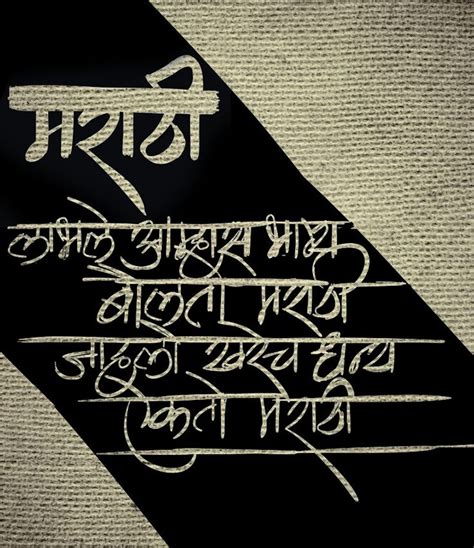 मराठी
लाभले आम्हास भाग्य
बोलतो मराठी
जाहलो खरेच धन्य
ऐकतो मराठी